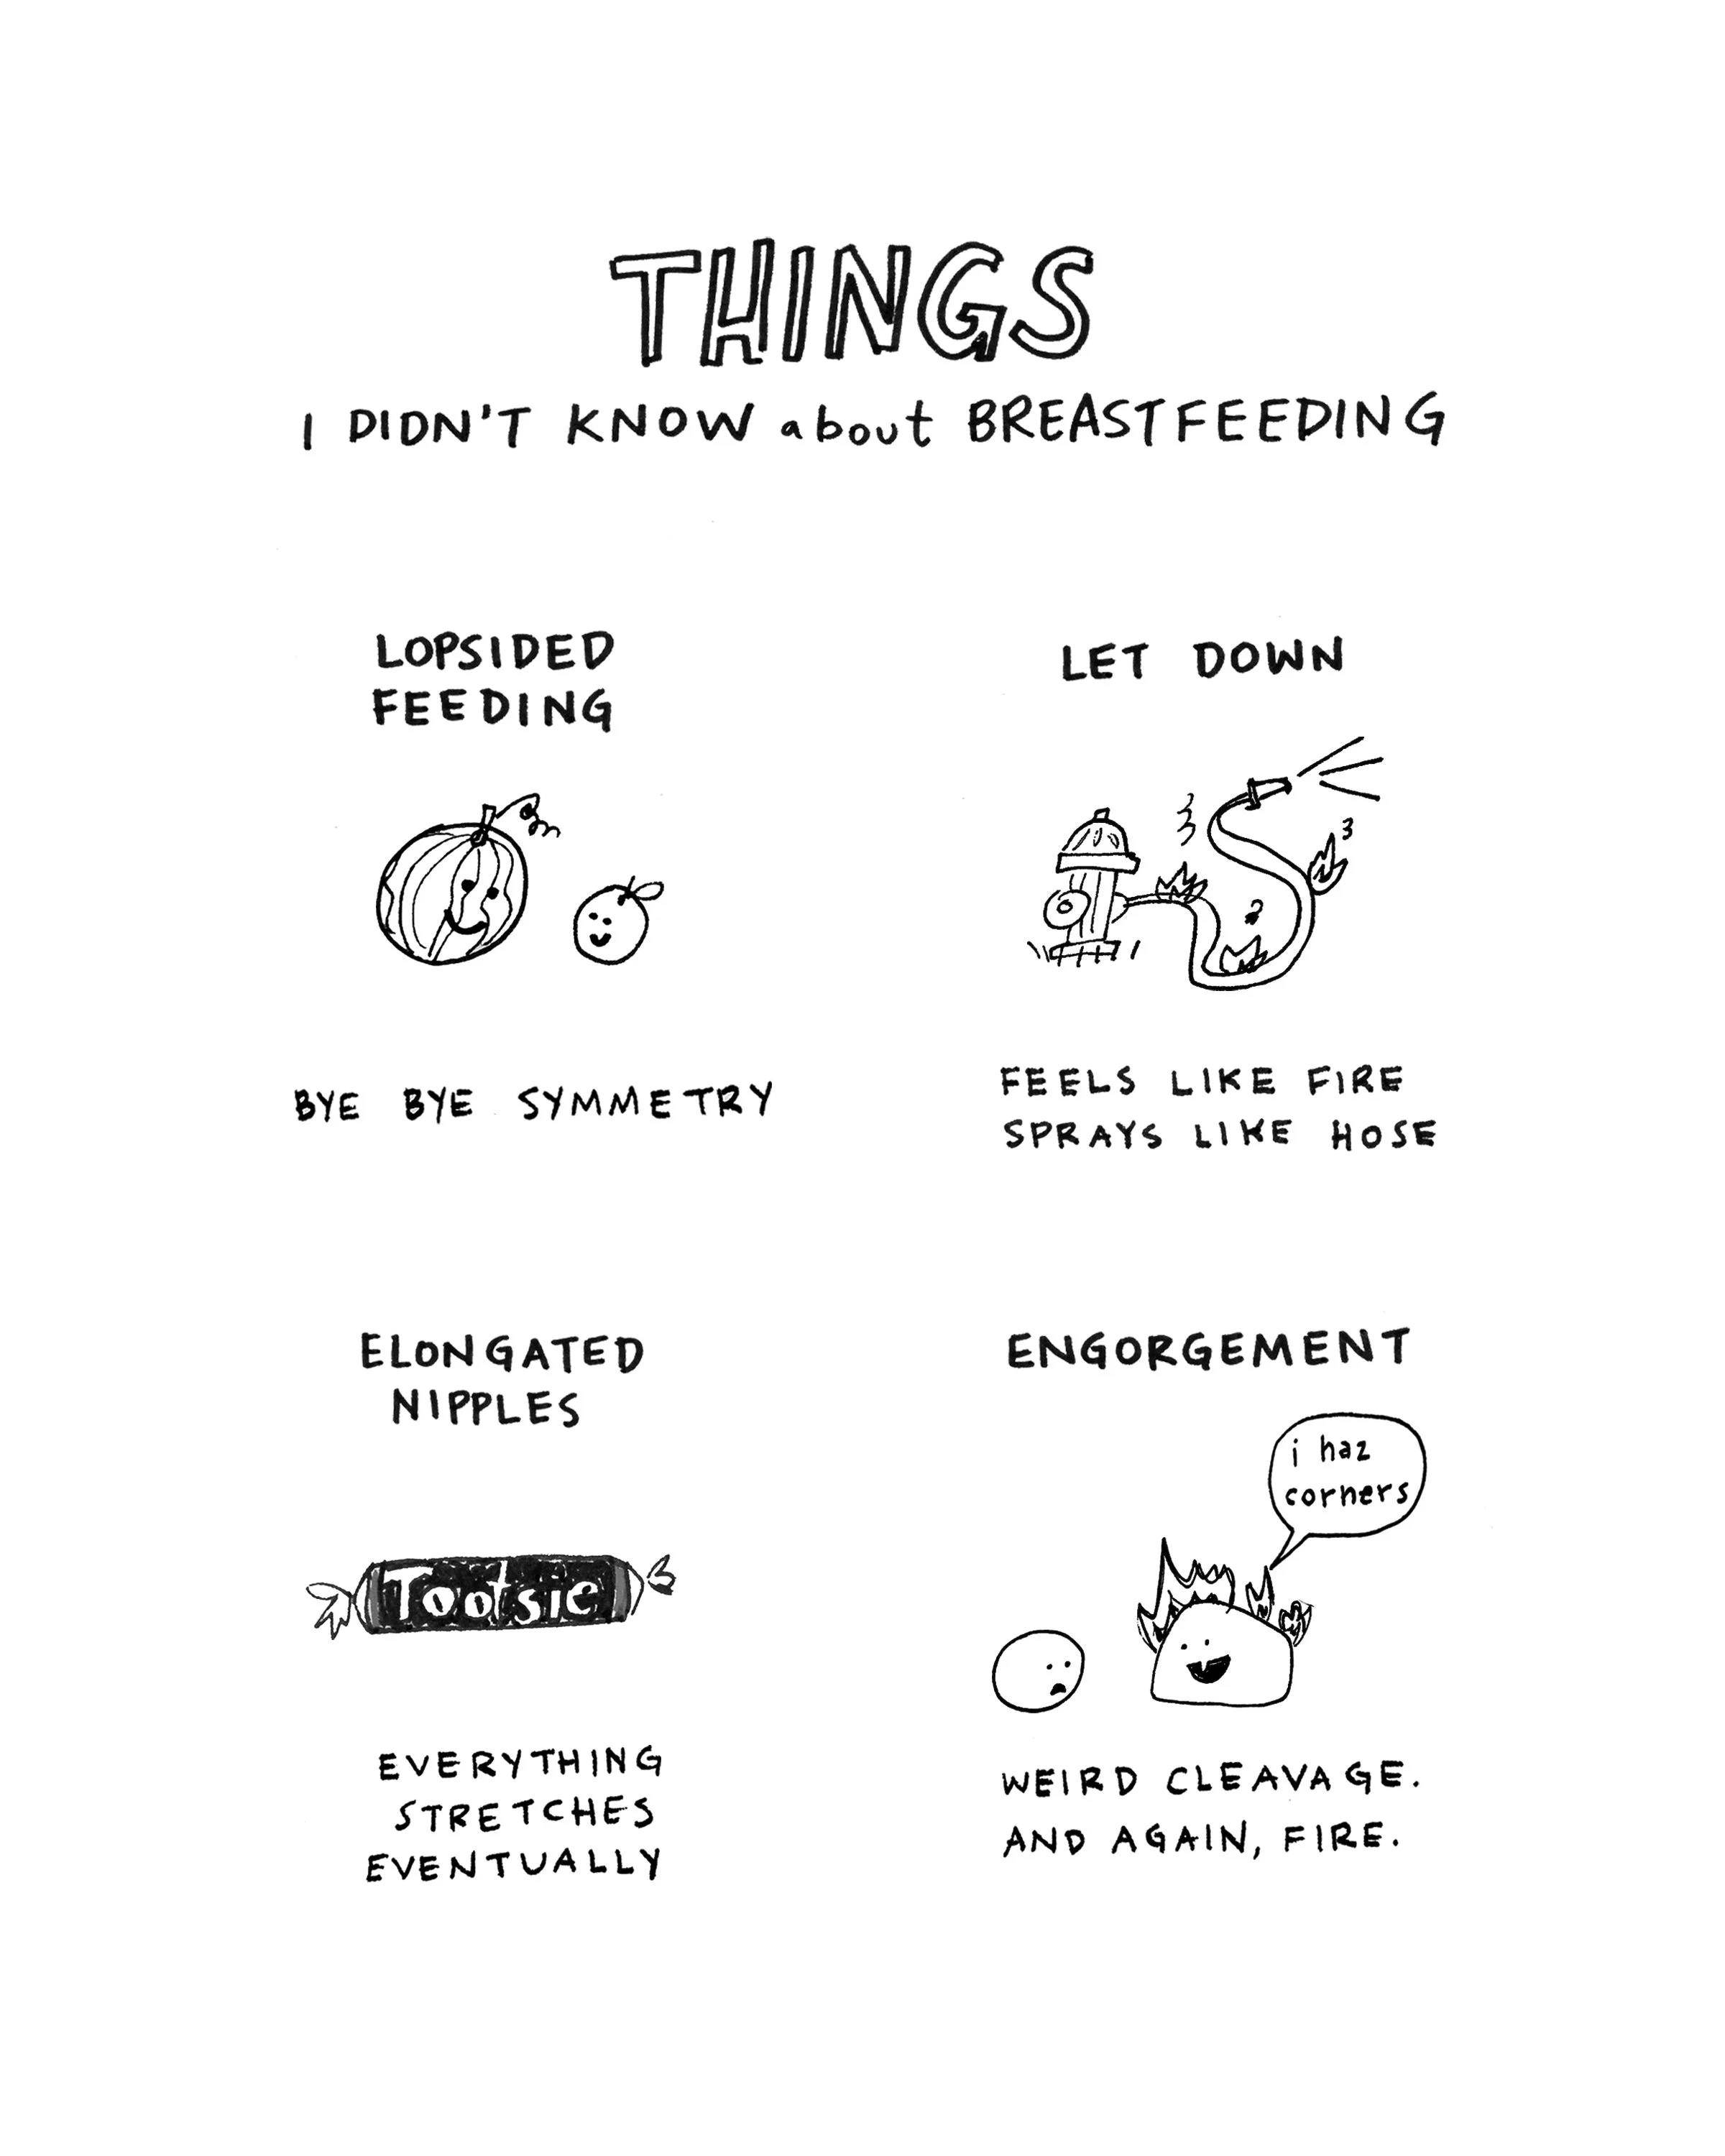 THINGS
I DIDN'T KNOW about BREASTFEEDING
LOPSIDED
FEEDING
BYE BYE SYMMETRY
LET DOWN
FEELS LIKE FIRE
SPRAYS LIKE HOSE
ELONGATED
NIPPLES
Tootsie
EVERYTHING
STRETCHES
EVENTUALLY
ENGORGEMENT
i haz
corners
WEIRD CLEAVAGE.
AND AGAIN, FIRE.